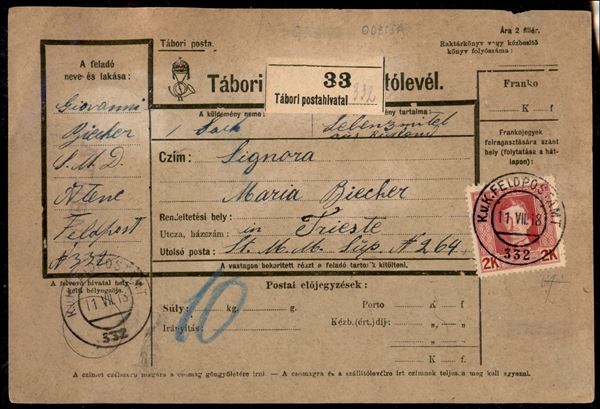 ODESSA
Tábori posta.
Ára 2 fillér.
Raktárkönyv vagy kézbesítő
könyv folyószáma:
A feladó
neve és lakása:
Giovanni
Biecher
S.M.D.
Feldpost
# 332
Tábori
33
Tábori postahivatal 332
tólevél.
A küldemény neme:
1 Sack
ény tartalma:
Lebensmittel
aus Russland
Czím: Signora
Maria Biecher
Rendeltetési hely:
in Trieste
Utcza, házszám:
Utolsó posta: St. M. M. Sup. # 264
A vastagon bekeritett részt a feladó tarto
k kitölteni.
Franko
K f
Frankojegyek
felragasztására szánt
hely (folytatása a hát-
lapon):
K.u.K. FELDPOSTAMT
11 VII. 18
332
2K 2K
A felvevő hivatal hely- és
kelti bélyegzője.
K.u.K. FELDPOSTAMT
11 VII. 18
332
10
Postai előjegyzések:
Súly: kg. g.
Irányítás:
Porto K f
Kézb. (ért.) díj: „ „
„ „
K f
A czímet czélszerű magára a csomag göngyöletére írni. — A csomagra és a szállítólevélre írt czímnek teljesen meg kell egyezni.